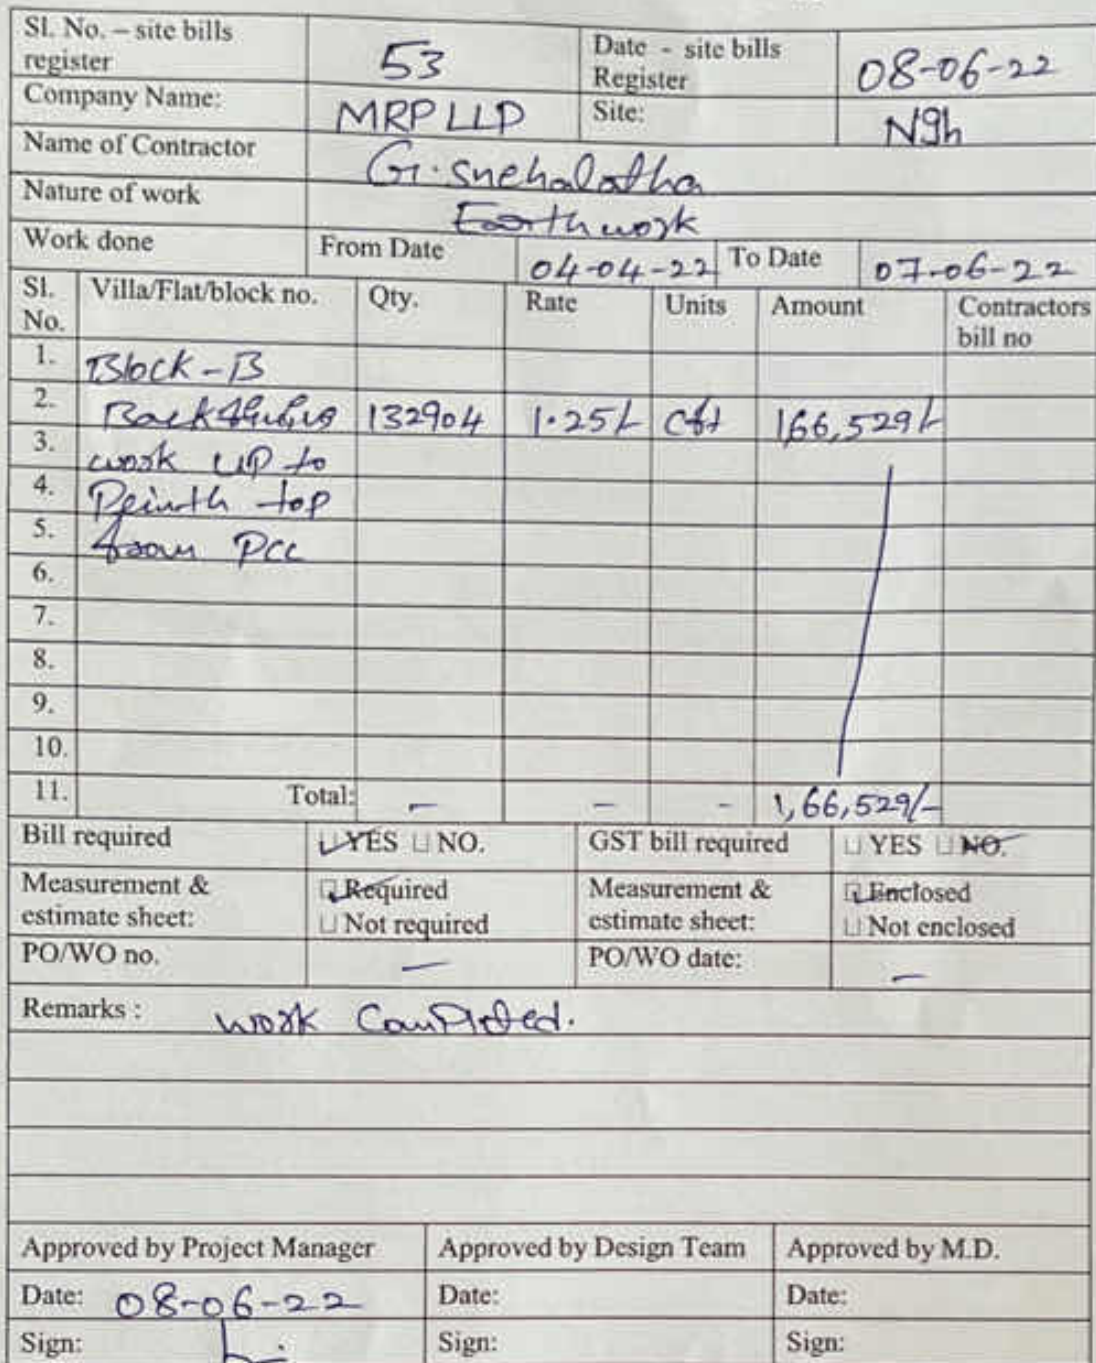 Sl. No. – site bills register 53 Date - site bills Register 08-06-22
Company Name: MRP LLP Site: Ngh
Name of Contractor G. Snehalatha
Nature of work Earthwork
Work done From Date 04-04-22 To Date 07-06-22
Sl. No. Villa/Flat/block no. Qty. Rate Units Amount Contractors bill no
1. Block-B
2. 132904 1.25/- cft 166,529/-
3. work up to
4. top
5. from PCC
6.
7.
8.
9.
10.
11. Total: – – - 1,66,529/-
Bill required YES NO. GST bill required YES NO.
Measurement & estimate sheet: Required Not required Measurement & estimate sheet: Enclosed Not enclosed
PO/WO no. – PO/WO date: –
Remarks : work Completed.
Approved by Project Manager Approved by Design Team Approved by M.D.
Date: 08-06-22 Date: Date:
Sign: Sign: Sign: